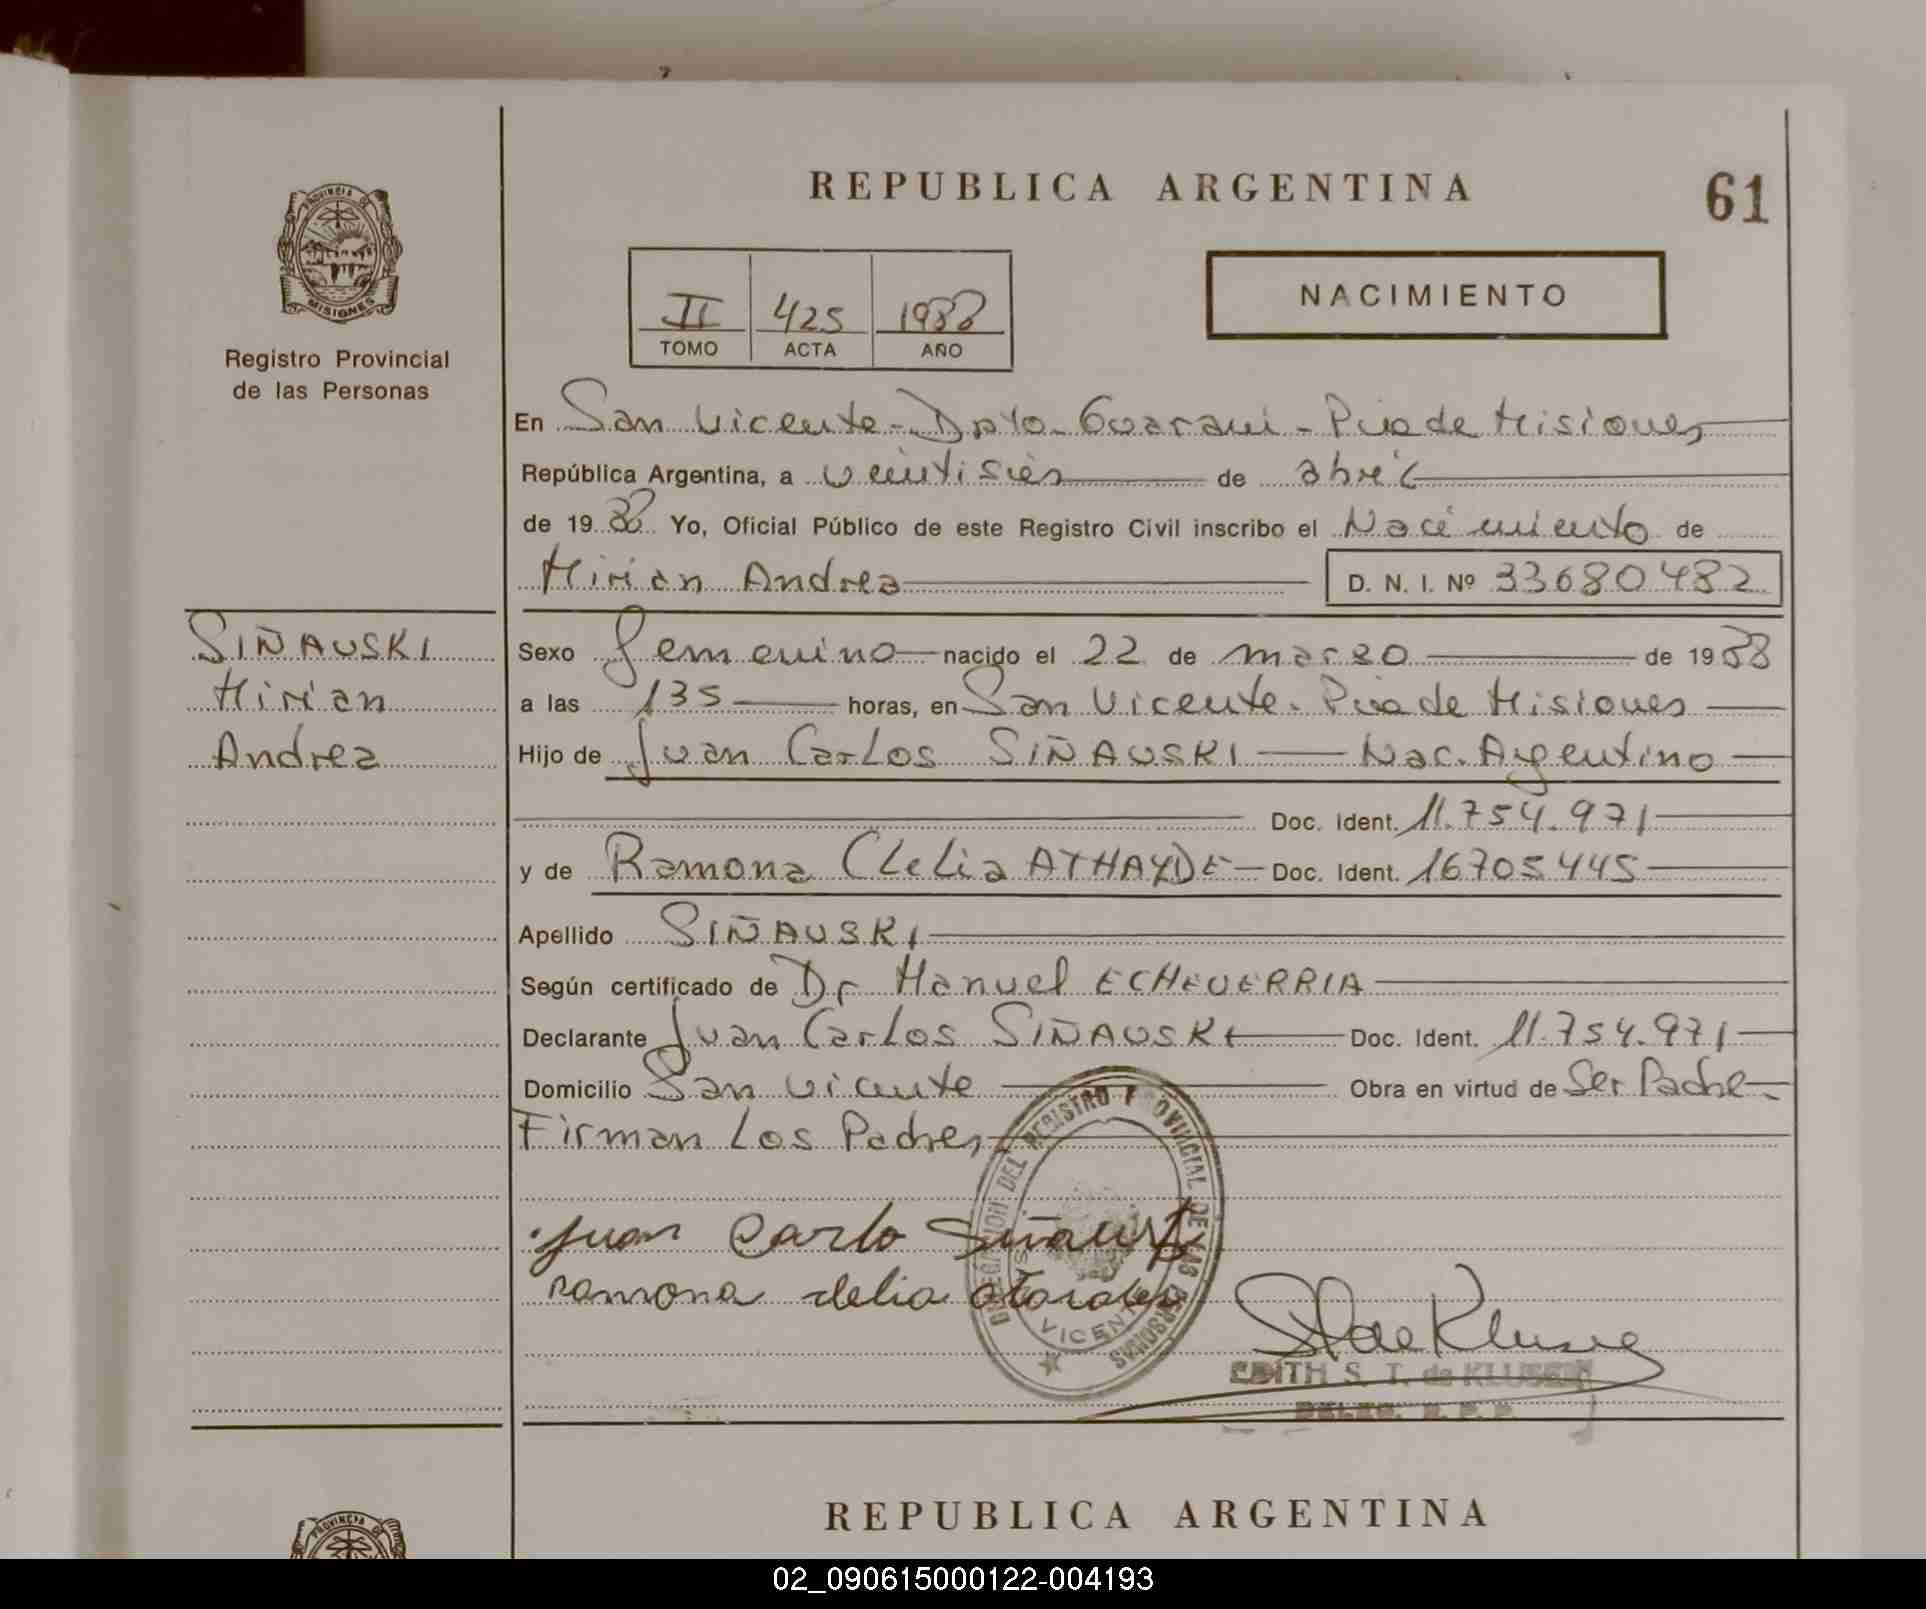 REPUBLICA ARGENTINA
61
PROVINCIA DE
MISIONES
Registro Provincial
de las Personas
II 425 1988
TOMO ACTA AÑO
NACIMIENTO
En San Vicente - Dpto. Guarani - Pcia de Misiones
República Argentina, a veintiseis de abril
de 1988 Yo, Oficial Público de este Registro Civil inscribo el Nacimiento de
Mirian Andrea D. N. I. Nº 33680482
SIÑAUSKI
Mirian
Andrea
Sexo femenino nacido el 22 de marzo de 1988
a las 135 horas, en San Vicente. Pcia de Misiones
Hijo de Juan Carlos SIÑAUSKI Nac. Argentino
Doc. Ident. 11.754.971
y de Ramona Clelia ATHAYDE Doc. Ident. 16705445
Apellido SIÑAUSKI
Según certificado de Dr Manuel ECHEVERRIA
Declarante Juan Carlos SIÑAUSKI Doc. Ident. 11.754.971
Domicilio San Vicente Obra en virtud de Ser Padre
Firman Los Padres
DELEGACION DEL REGISTRO PROVINCIAL DE LAS PERSONAS
VICENTE
Juan Carlo Siñauski
ramona clelia
EDITH S. T. de KLUSEN
DELEG. R. P. P.
REPUBLICA ARGENTINA
PROVINCIA DE
02_090615000122-004193